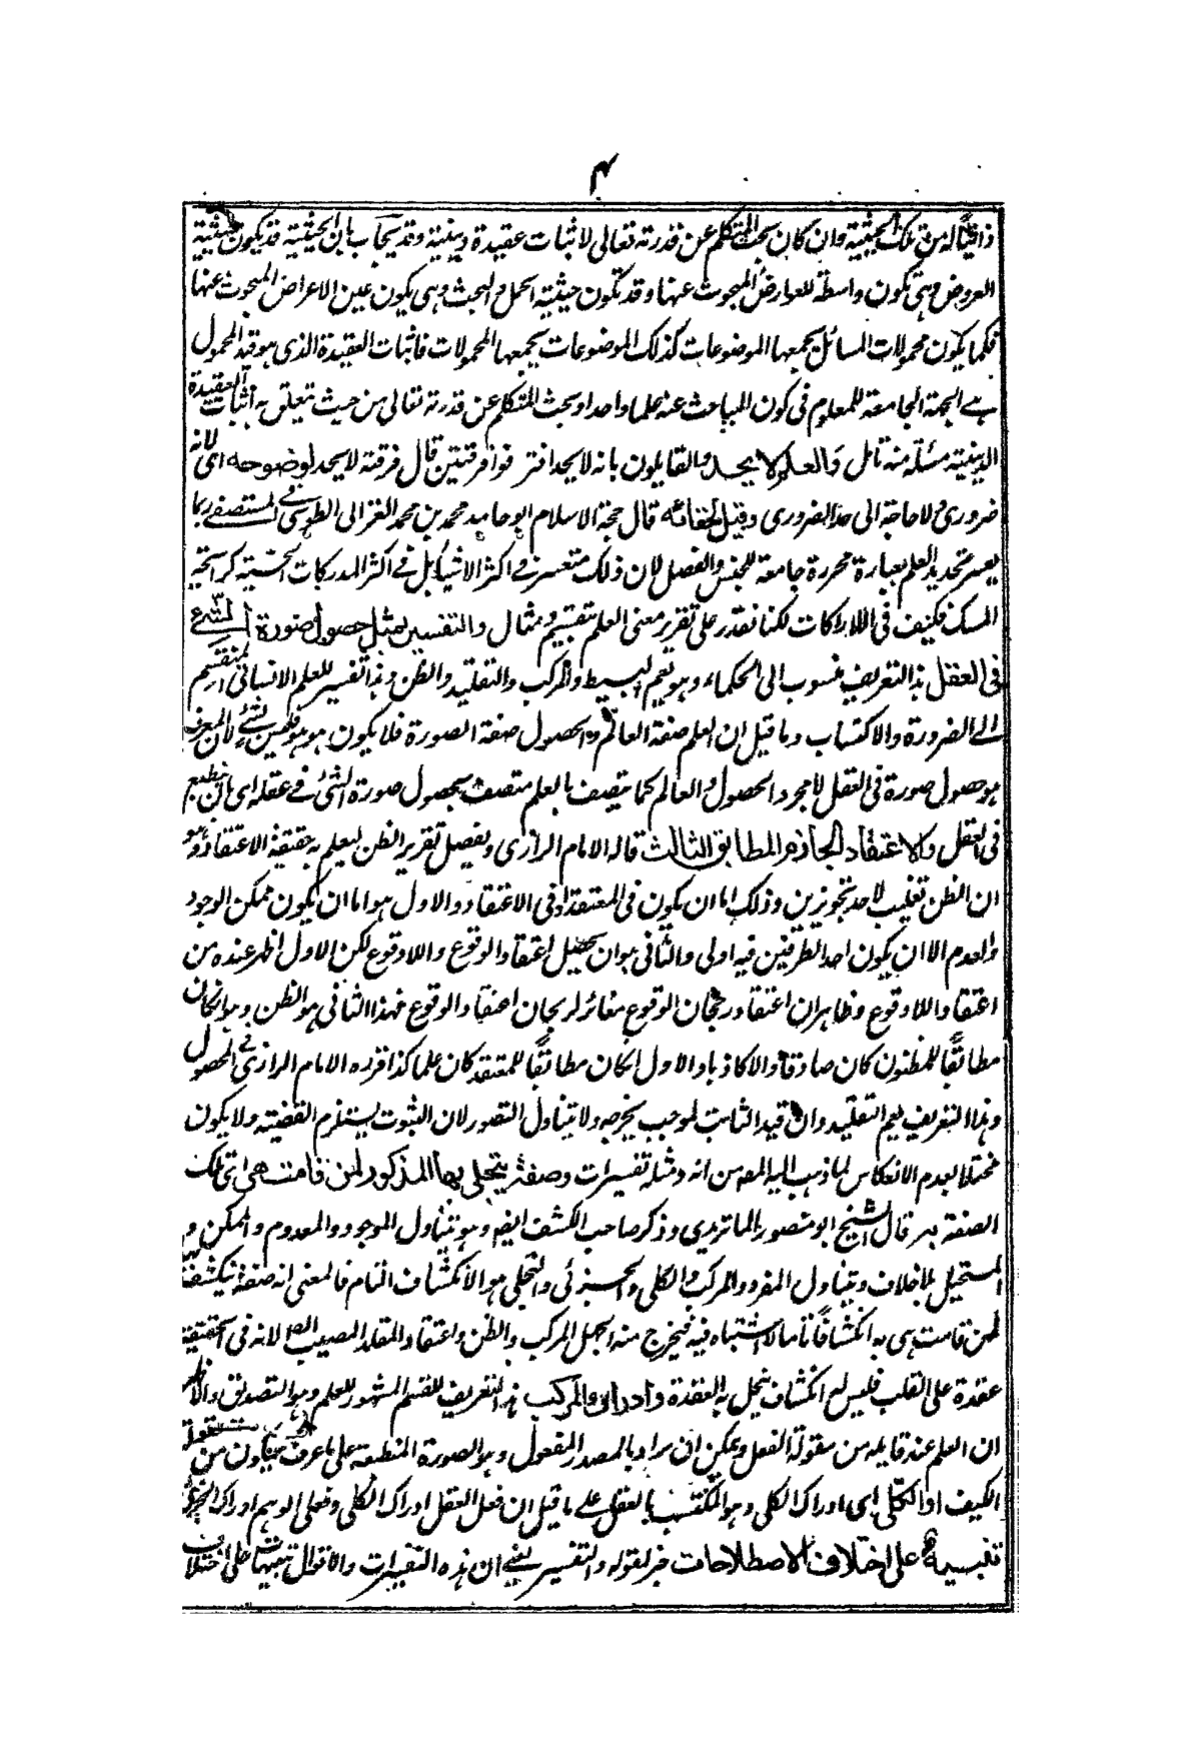 ۴
ذاتيا له من تلك الحيثية وان كان بحث المتكلم عن قدرته تعالى لاثبات عقيدة دينية وقد يجاب بان الحيثية قد يكون حيثية
العروض وهى تكون واسطة للعوارض المبحوث عنها وقد تكون حيثية الحمل والبحث وهى يكون عين الاعراض المبحوث عنها
فكما يكون محمولات المسائل يجمعها الموضوعات كذلك الموضوعات يجمعها المحمولات فاثبات العقيدة الذى هو قيد المحمول
هى الجهة الجامعة للمعلوم فى كون المباحث عنه علما واحدا وبحث المتكلم عن قدرته تعالى من حيث تتعلق به اثبات العقيدة
الدينية مسئلة منه تامل والعلم لا يحد والقايلون بانه لا يحد افترقوا فرقتين قال فرقة لا يحد لوضوحه اى لانه
ضرورى ولا حاجة الى حد الضرورى وقيل لخفائه قال حجة الاسلام ابو حامد محمد بن محمد الغزالى الطوسى فى المستصفى ربما
يعسر تحديد العلم بعبارة محررة جامعة للجنس والفصل لان ذلك متعسر فى اكثر الاشياء بل فى اكثر المدركات الحسية كرائحة
المسك فكيف فى الادراكات لكنا نقدر على تقرير معنى العلم بتقسيم ومثال والتفسير بمثل حصول صورة الشئ
فى العقل هذا التعريف منسوب الى الحكماء وهو يعم البسيط والمركب والتقليد والظن وهذا تفسير للعلم الانسانى المنقسم
الى الضرورة والاكتساب وما قيل ان العلم صفة العالم والحصول صفة الصورة فلا يكون هو هو فليس بشئ لان المعرف
هو حصول صورة فى العقل لا مجرد الحصول والعالم كما يتصف بالعلم متصف بحصول صورة الشئ فى عقله اى بان ينطبع
فى العقل والاعتقاد الجازم المطابق الثالث قاله الامام الرازى وتفصيل تقرير الظن ليعلم به حقيقة الاعتقاد وهو
ان الظن تغليب لاحد تجويزين وذلك اما ان يكون فى المعتقد او فى الاعتقاد والاول هو اما ان يكون ممكن الوجود
والعدم الا ان يكون احد الطرفين فيه اولى والثانى هو ان يحصل اعتقاد الوقوع واللاوقوع لكن الاول اظهر عنده من
اعتقاد اللاوقوع وظاهر ان اعتقاد رجحان الوقوع مغائر لرجحان اعتقاد الوقوع فهذا الثانى هو الظن وهو ان كان
مطابقا للمظنون كان صادقا والا كاذبا والاول ان كان مطابقا للمعتقد كان علما كذا قرره الامام الرازى فى المحصول
وهذا التعريف يعم التقليد وان قيد الثابت لموجب يخرجه ولا يتناول التصور لان الثبوت يستلزم القضية ولا يكون
مختلا بعدم الانعكاس لما ذهب اليه المصـ من انه ومثله تفسيرات وصفة يتجلى بها المذكور لمن قامت هى اى تلك
الصفة به قال الشيخ ابو منصور الماتريدى وذكر صاحب الكشف ايضـ وهو يتناول الموجود والمعدوم والممكن و
المستحيل بلا خلاف ويتناول المفرد والمركب والكلى والجزئى والتجلى هو الانكشاف التام فالمعنى انه صفة ينكشف بها
لمن قامت هى به انكشافا تاما لا اشتباه فيه فيخرج منه الجهل المركب والظن واعتقاد المقلد المصيب لانه فى الحقيقة
عقدة على القلب فليس له انكشاف ينحل به العقدة وادراك المركب هذا التعريف للقسم المشهور للعلم وهو التصديق والاظهر
ان العلم عند قايله من مقولة الفعل ويمكن ان يراد بالمصدر المفعول وهو الصورة المنطبعة على ما عرف فيكون من مقولة
الكيف او الكلى اى ادراك الكلى وهو المكتسب بالعقل على ما قيل ان فعل العقل ادراك الكلى وفعل الوهم ادراك الجزئى
تنبيه على اختلاف الاصطلاحات خبر لقوله والتفسير يعنى ان هذه التفسيرات والاقوال تنبيهات على اختلاف